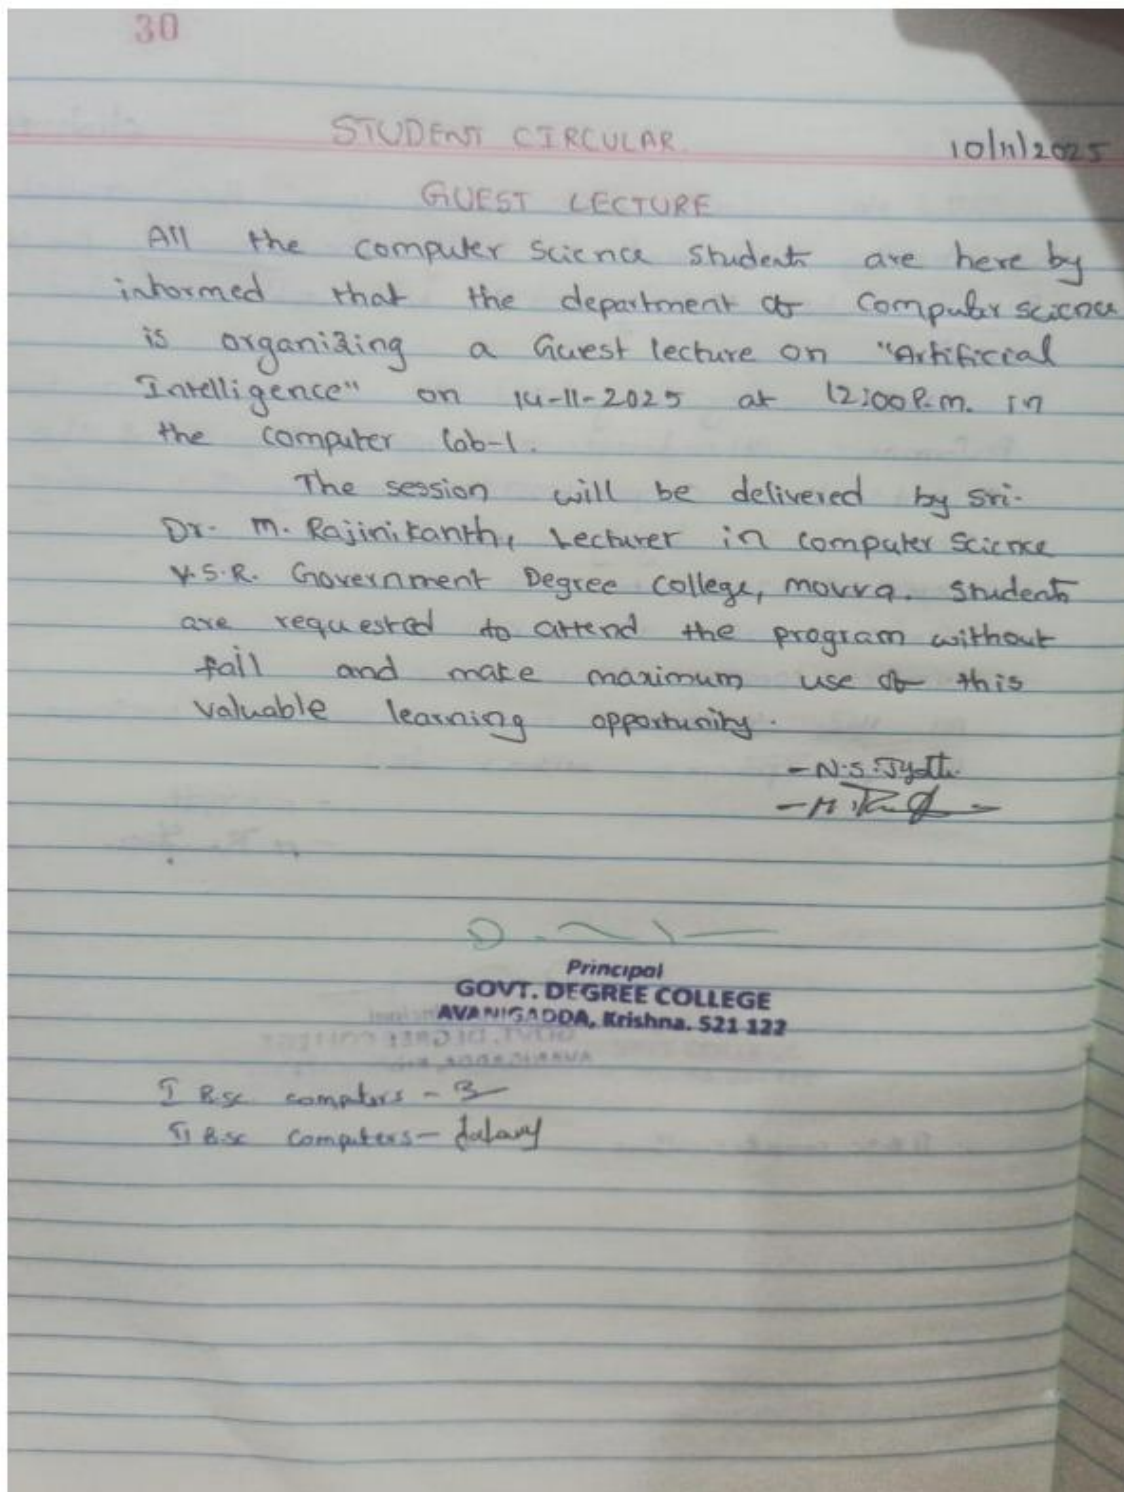 30
STUDENT CIRCULAR
10/11/2025
GUEST LECTURE
All the computer science students are here by
informed that the department of computer science
is organizing a Guest lecture on "Artificial
Intelligence" on 14-11-2025 at 12:00 P.m. in
the computer lab-1.
The session will be delivered by sri.
Dr. M. Rajinikanth, Lecturer in computer science
Y.S.R. Government Degree College, movva. Students
are requested to attend the program without
fail and make maximum use of this
valuable learning opportunity.
- N.S. Jyothi
Principal
GOVT. DEGREE COLLEGE
AVANIGADDA, Krishna. 521 122
I B.sc computers -
II B.sc computers -